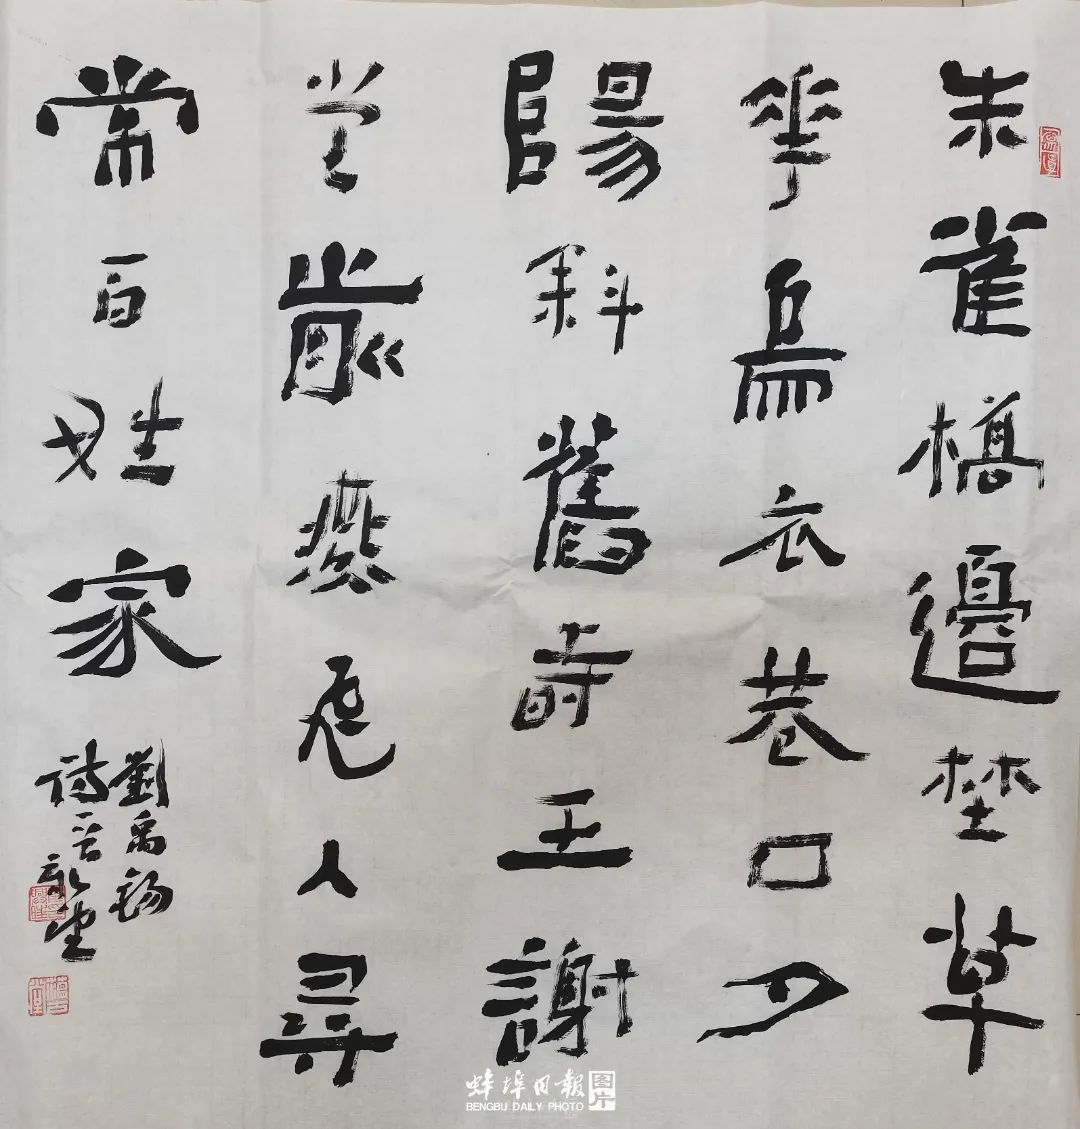 朱雀橋邊埜草
華烏衣巷口夕
陽斜舊時王謝
堂前燕飛入尋
常百姓家
劉禹錫
詩
蚌埠日報 图片
BENGBU DAILY PHOTO